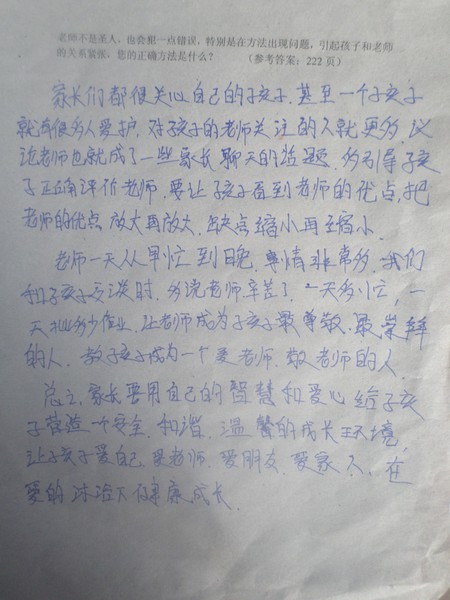 老师不是圣人，也会犯一点错误，特别是在方法出现问题，引起孩子和老师
的关系紧张，您的正确方法是什么？（参考答案：222页）
家长们都很关心自己的孩子，甚至一个孩子
就有很多人爱护，对孩子的老师关注的人就更多，议
论老师也就成了一些家长聊天的话题，多引导孩
子正确评价老师，要让孩子看到老师的优点，把
老师的优点放大再放大，缺点缩小再缩小。
老师一天从早忙到晚，事情非常多，我们
和孩子交谈时，多说老师辛苦了，一天多忙，一
天批多少作业，让老师成为孩子最尊敬，最崇拜
的人，教孩子成为一个爱老师，敬老师的人。
总之，家长要用自己的智慧和爱心给子孩
子营造一个安全、和谐、温馨的成长环境，
让孩子爱自己，爱老师，爱朋友，爱家人，在
爱的沐浴下健康成长。